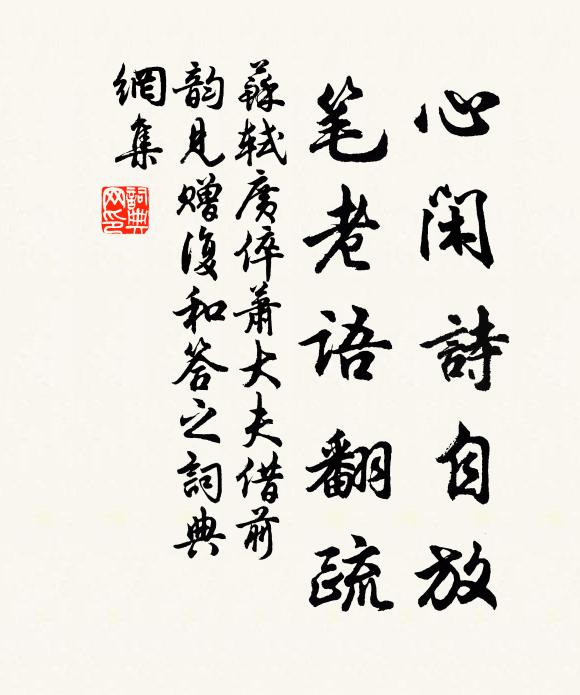 心閑詩自放
笔老語翻疏
蘇軾廣倅蕭大夫借前
韵見赠復和答之詞典
網集
詞典网印